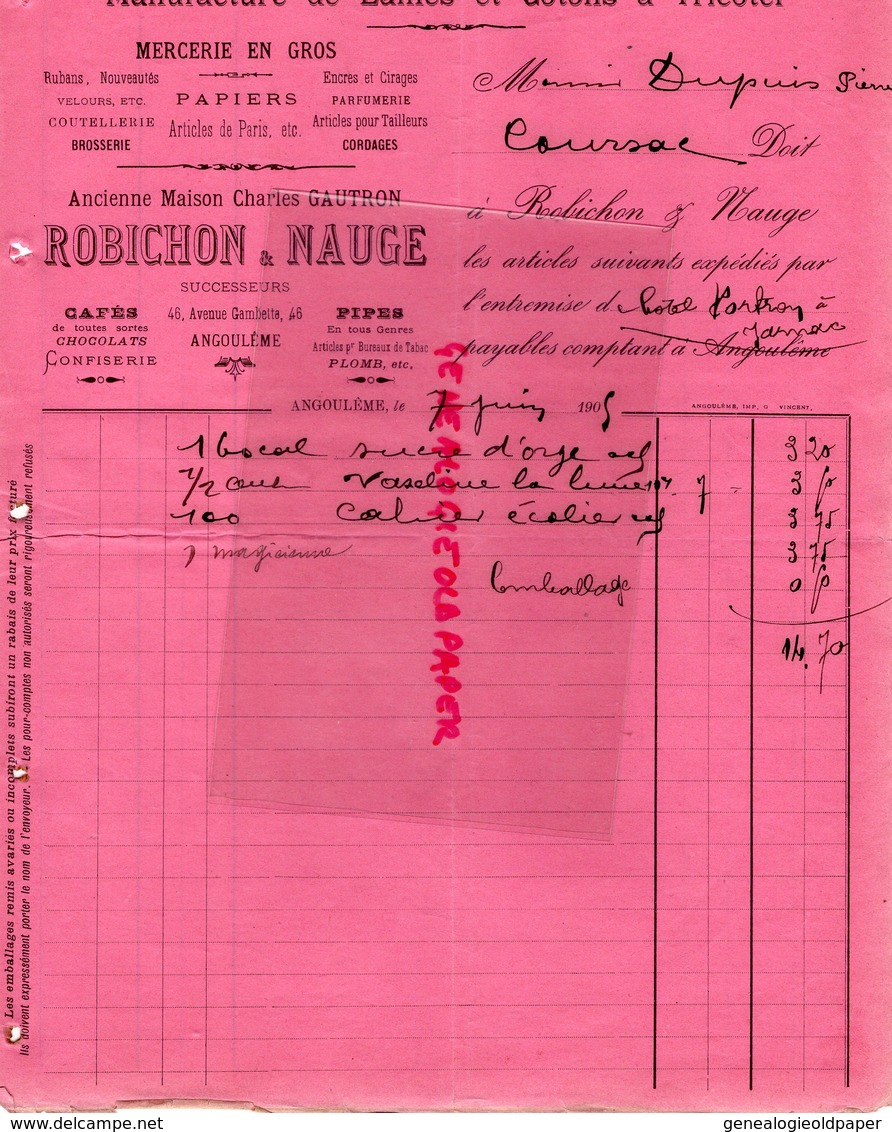 Manufacture de Laines et Cotons à Tricoter
MERCERIE EN GROS
Rubans, Nouveautés
VELOURS, ETC.
COUTELLERIE
BROSSERIE
PAPIERS
Articles de Paris, etc.
Encres et Cirages
PARFUMERIE
Articles pour Tailleurs
CORDAGES
Ancienne Maison Charles GAUTRON
ROBICHON & NAUGE
SUCCESSEURS
CAFÉS
de toutes sortes
CHOCOLATS
CONFISERIE
46, Avenue Gambetta, 46
ANGOULÊME
PIPES
En tous Genres
Articles pr Bureaux de Tabac
PLOMB, etc.
Dupuis Pierre
Coursac Doit
à Robichon & Nauge
les articles suivants expédiés par
l'entremise d hôtel à
Jarnac
payables comptant à Angoulême
ANGOULÊME, le 7 juin 1905
ANGOULÊME, IMP. G. VINCENT.
1 bocal sucre d'orge 3 20
1/2 Vaseline la 7
100 Cahier écolier 3 75
1 magicienne 3 75
Emballage
14.70
Les emballages remis avariés ou incomplets subiront un rabais de leur prix facturé
Ils doivent expressément porter le nom de l'envoyeur. Les pour-comptes non autorisés seront rigoureusement refusés
GENEALOGIEOLDPAPER
www.delcampe.net
genealogieoldpaper